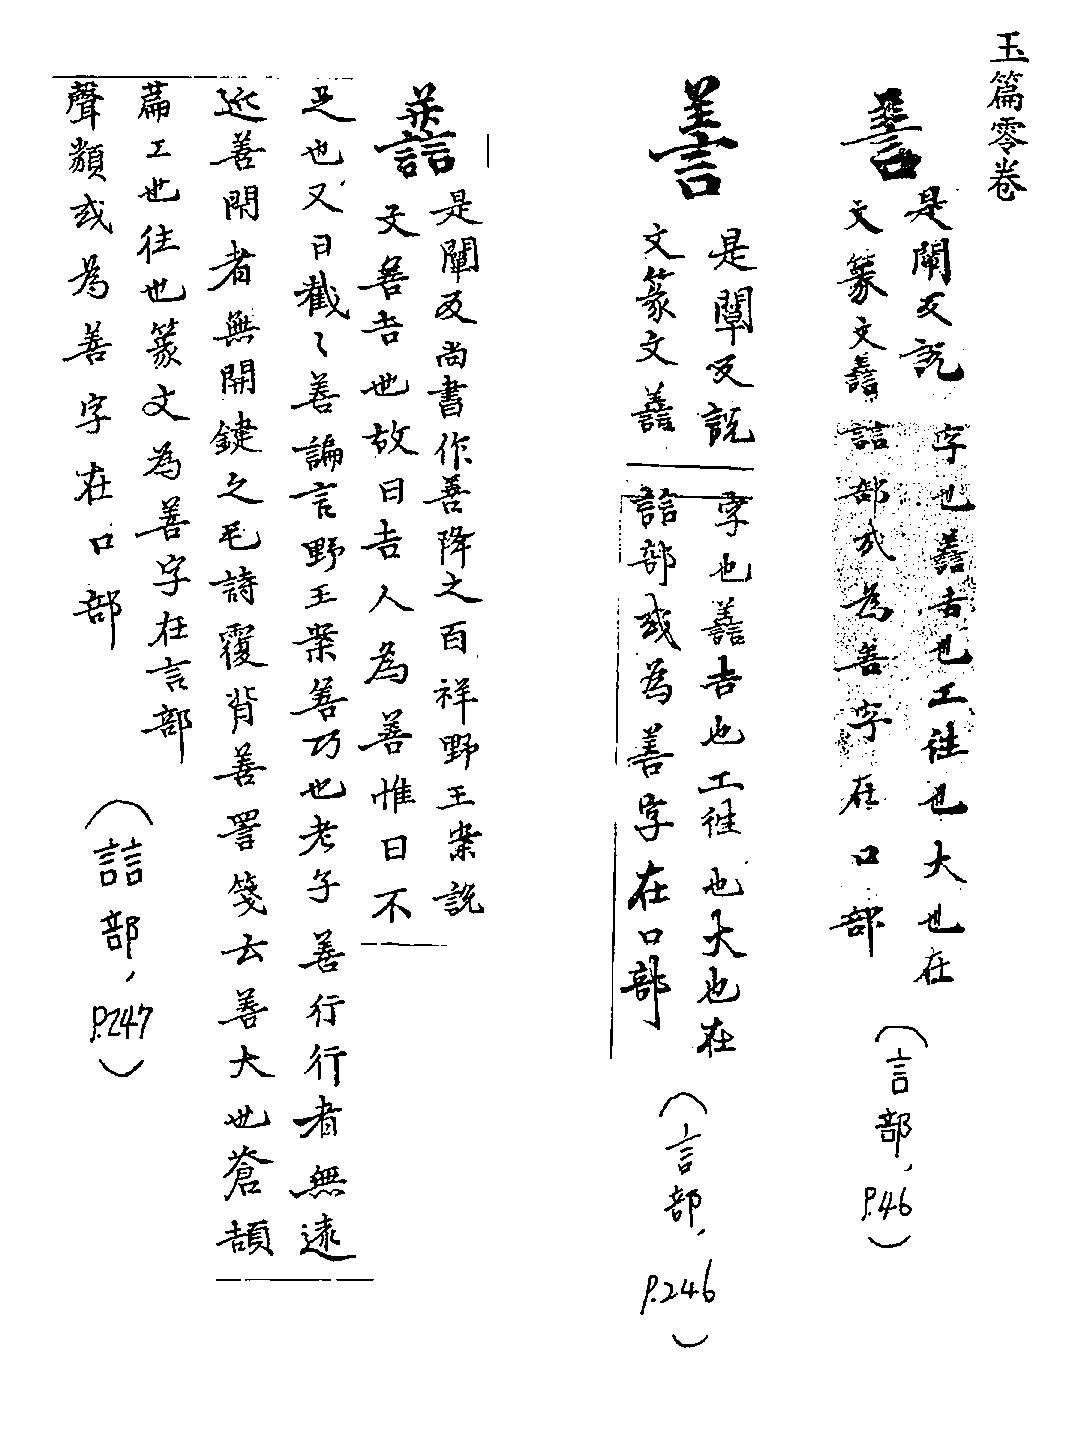 玉篇零卷
善
是闡反説字也譱吉也工往也大也在
文篆文譱誩部或為善字在口部
(言部,P.46)
善
是闡反説字也譱吉也工往也大也在
文篆文譱誩部或為善字在口部
(言部,P.246)
譱
是闡反尚書作善降之百祥野王案説
文善吉也故曰吉人為善惟日不
足也又曰截〻善諞言野王案善巧也老子善行行者無遠
近善閇者無開鍵之毛詩覆背善詈箋云善大也蒼頡
篇工也往也篆文為善字在言部
聲類或為善字在口部
(誩部,P.247)